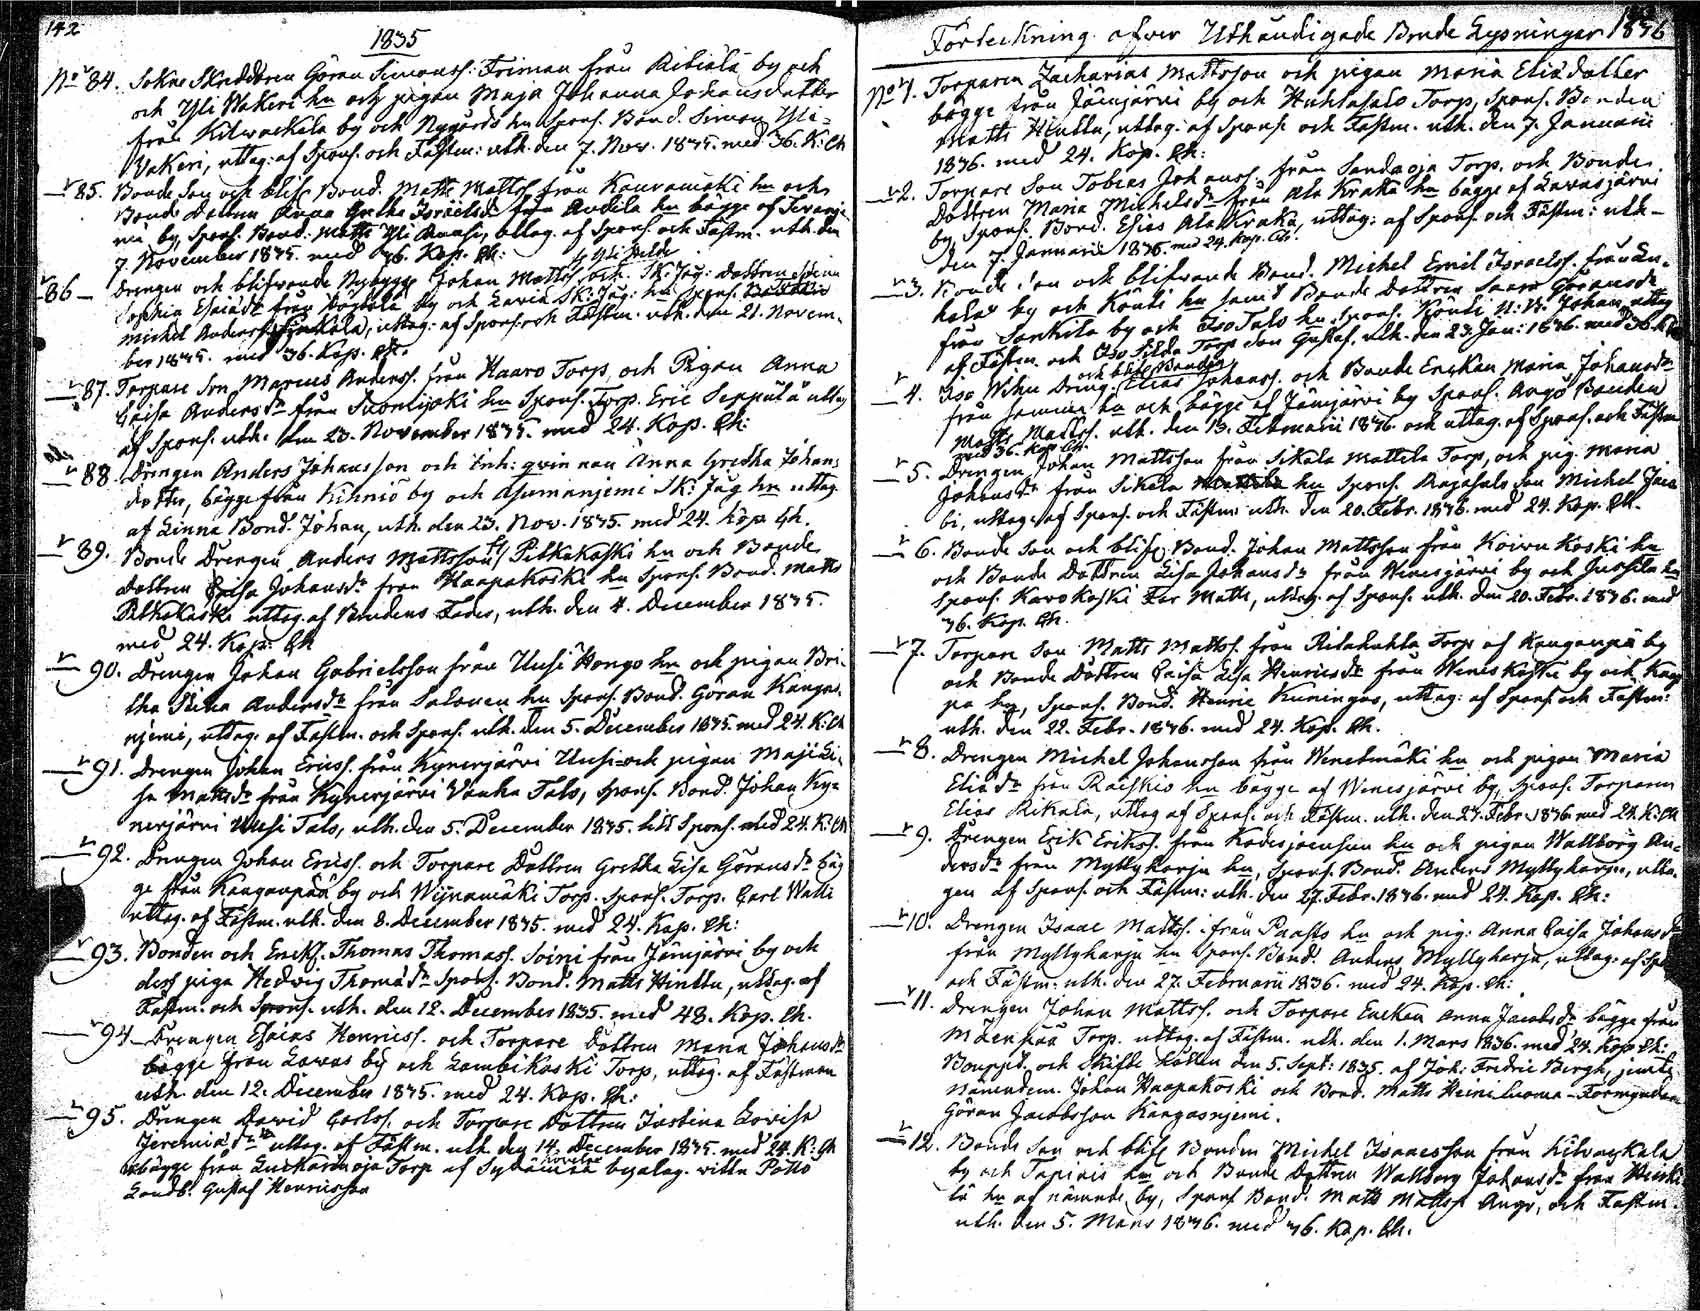 142
1835
No 84. Sokne Skreddren Göran Simonss. Friman från Kibiälä by och
och Yli Wakeri hn och pigan Maja Johanna Johansdotter
från Kilwackela by och Nygårds hn Spons. Bond. Simon Yli=
Vakeri, uttag. af Spons. och Fästm. uth. den 7. Nov. 1835. med 36. K. Ch
85. Bonde Son och blif. Bond. Matts Mattss. från Kauramäki hn och
Bonde Dottren Anna Gretha Israelsdr från Autila hn bägge af
by, Spons. Bond. Matts Yli uttag. af Spons. och Fästm. uth. den
7. November 1835. med 36. Kop. Ch:
86 Drengen och blifwande Nybygg. Johan Mattss. och Sk: Jäg: Dottren Stina
Sophia Esaiædr från by och Lavia Sk: Jäg: hn Spons.
Michel Anderss. uttag. af Spons. och Fästm. uth. den 21. Novem=
ber 1835. med 36. Kop. Ch.
87. Torpare Son Marcus Anderss. från Haaro Torp och Pigan Anna
Caisa Andersdr från Suomijoki hn Spons. Torp. Eric Seppälä uttag
af Spons. uth. den 23. November 1835. med 24. Kop. Ch:
88. Drengen Anders Johansson och Inh: qwinnan Anna Gretha Johans
dotter, bägge från Kihniö by och Asumanjemi Sk: Jäg hn uttag
af Linna Bond. Johan, uth. den 23. Nov. 1835. med 24. Kop. Ch.
89. Bonde Drengen Anders Mattsson fr Pitkäkoski hn och Bonde
Dottren Caisa Johansdr från Haapakoski hn Spons. Bond. Matts
Pitkäkoski uttag. af Brudens Fader, uth. den 4. December 1835.
med 24. Kop. Ch
90. Drengen Johan Gabrielsson från Uusi Hongo hn och pigan Bri=
tha Stina Andersdr från Salonen hn Spons. Bond. Göran Kangas=
njemi, uttag. af Fästm. och Spons. uth. den 5. December 1835. med 24. K. Ch
91. Drengen Johan Ericss. från Kynerjärvi Uusi och pigan Maja Li=
sa Mattsdr från Kynerjärvi Vanha Talo, Spons. Bond. Johan Ky=
nerjärvi Uusi Talo, uth. den 5. December 1835. till Spons. med 24. K. Ch
92. Drengen Johan Ericss. och Torpare Dottren Gretha Lisa Göransdr bäg
ge från Kangaanpää by och Wijnamäki Torp. Spons. Torp. Carl Matti
uttag. af Fästm. uth. den 8. December 1835. med 24. Kop. Ch:
93. Bonden och Enkl. Thomas Thomass. Soini från Jämijärvi by och
dess piga Hedvig Thomædr Spons. Bond. Matts Hinttu, uttag. af
Fästm. och Spons. uth. den 12. December 1835. med 48. Kop. Ch.
94 Drengen Esaias Henricss. och Torpare Dottren Maria Johansdr
bägge från Lawas by och Lambikoski Torp, uttag. af Fästman
uth. den 12. December 1835. med 24. Kop. Ch:
95. Drengen David Carlss. och Torpare Dottren Justina Lovisa
Jeremiædr uttag. af Fästm. uth. den 14. December 1835. med 24. K: Ch
bägge från Torp af
Landb. Gustaf Henricsson
Förteckning öfver Uthändigade Bonde Lysningar 1836
No 1. Torparen Zacharias Mattsson och pigan Maria Eliædotter
bägge från Jämijärvi by och Huhtasalo Torp, Spons. Bonden
Matts Hinttu, uttag. af Spons. och Fästm. uth. den 7. Januarii
1836. med 24. Kop. Ch:
2. Torpare Son Tobias Johanss. från Sandaoja Torp. och Bonde
Dottren Maria Michelsdr från Ala Kraka hn bägge af Lawasjärvi
by Spons. Bond. Esias Ala Kraka, uttag: af Spons. och Fästm: uth.
den 7. Januarii 1836. med 24. Kop. Ch.
3. Bonde Son och blifwande Bond. Michel Emil Israelss. från
by och Konti hn samt Bonde Dottren Saara Göransdr
från Sarkila by och Iso Talo hn Spons. Konti N: B: Johan, uttag
af Fästm. och Iso Sildu Torp Son Gustaf. uth. den 23. Jan: 1836. med 36. K
4. Iso Wihu Dreng. och blif. Bonden Elias Johanss. och Bonde Enckan Maria Johansdr
från hn och bägge af Jämijärvi by Spons. Bonden
Matts Mattss. uth. den 13. Februarii 1836. och uttag. af Spons. och Fästm
med 36. Kop. Ch.
5. Drengen Johan Mattsson från Sikala Mattila Torp, och pig. Maria
Johansdr från Sikala hn Spons. Rajasalo Son Michel Jaco
bi, uttag. af Spons. och Fästm. uth. den 20. Febr. 1836. med 24. Kop. Ch.
6. Bonde Son och blif. Bond. Johan Mattsson från Koivu Koski hn
och Bonde Dottren Lisa Johansdr från Wenesjärvi by och Jussila hn
Spons. Karokoski Far Matts, uttag. af Spons. uth. den 20. Febr. 1836. med
36. Kop. Ch.
7. Torpare Son Matts Mattss. från Ritakuhta Torp af Kangaanpä by
och Bonde Dottren Caisa Lisa Henricsdr från Weneskoski by och
pä hn, Spons. Bond. Henric Kuningas, uttag: af Spons. och Fästm:
uth. den 22. Febr. 1836. med 24. Kop. Ch.
8. Drengen Michel Johansson från Wenetmäki hn och pigan Maria
Eliædr från Raiskio hn bägge af Wenesjärvi by, Spons. Torparen
Elias Rikala, uttag af Spons. och Fästm. uth. den 27. Febr. 1836 med 24. K. Ch
9. Drengen Erik Erikss. från hn och pigan Wallborg An=
dersdr från Myllyharju hn, Spons. Bond. Anders Myllyharju, utta=
gen af Spons. och Fästm: uth. den 27. Febr. 1836. med 24. Kop. Ch:
10. Drengen Isaac Mattss. från Paasto hn och pig: Anna Caisa Johansdr
från Myllyharju hn Spons. Bond. Anders Myllyharju, uttag: af
och Fästm. uth. den 27. Februarii 1836. med 24. Kop. Ch:
11. Drengen Johan Mattss. och Torpare Enckan Anna Jacobsdr bägge från
Mäenpää Torp. uttag. af Fästm. uth. den 1. Mars 1836. med 24. Kop Ch:
Bouppt. och Skifte hållen den 5. Sept: 1835. af Joh: Fredric Bergh, jemte
Nämndem. Johan Haapakoski och Bond. Matts Heiniluoma - Förmyndare
Göran Jacobsson Kangasnjemi.
12. Bonde Son och blif. Bonden Michel Isaacsson från Kilwackala
by och hn och Bonde Dottren Wallborg Johansdr från
lä hn af nämnde by, Spons Bond. Matts Mattss. och Fästm.
uth. den 5. Mars 1836. med 36. Kop. Ch.